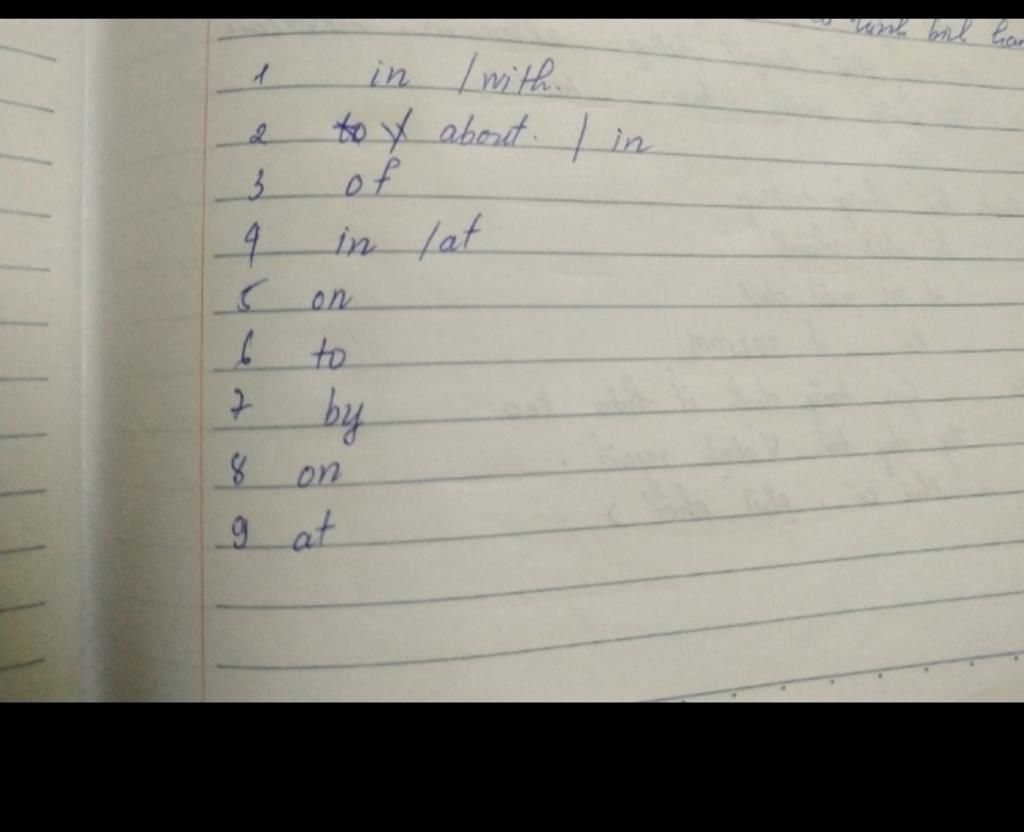 1 in / with.
2 about. / in
3 of
4 in / at
5 on
6 to
7 by
8 on
9 at